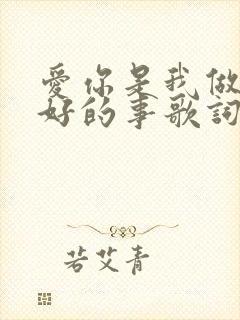 愛你是我做
好的事歌詞
若艾青